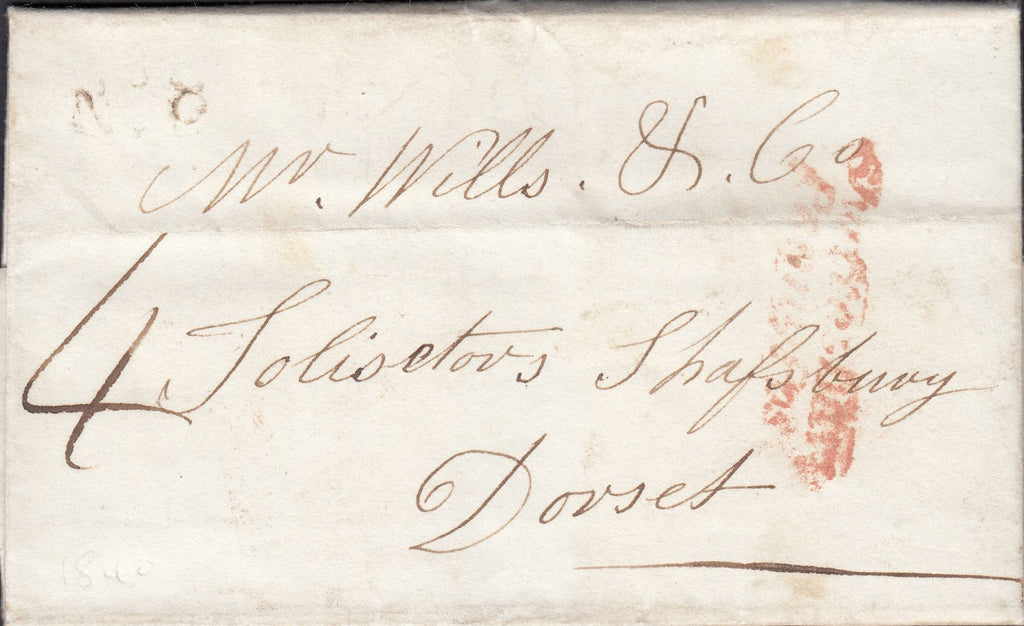 Mr. Wills. &. Co
4 Solisctors Shafsbury
Dorset
1840